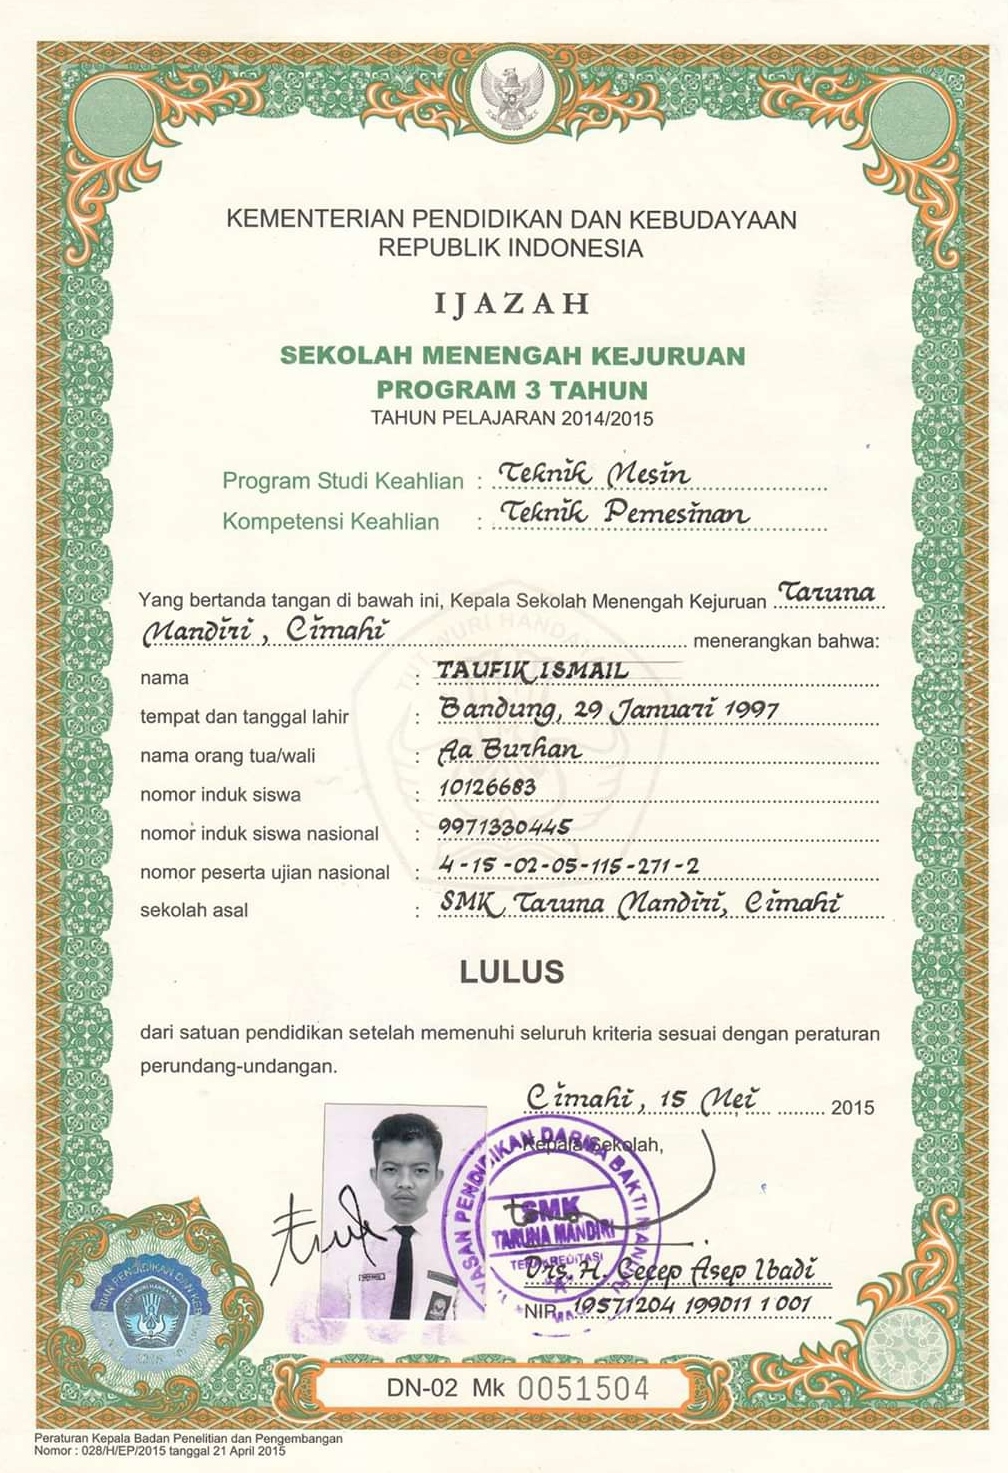 KEMENTERIAN PENDIDIKAN DAN KEBUDAYAAN
REPUBLIK INDONESIA
IJAZAH
SEKOLAH MENENGAH KEJURUAN
PROGRAM 3 TAHUN
TAHUN PELAJARAN 2014/2015
Program Studi Keahlian : Teknik Mesin
Kompetensi Keahlian : Teknik Pemesinan
Yang bertanda tangan di bawah ini, Kepala Sekolah Menengah Kejuruan Taruna
Mandiri, Cimahi menerangkan bahwa:
nama : TAUFIK ISMAIL
tempat dan tanggal lahir : Bandung, 29 Januari 1997
nama orang tua/wali : Aa Burhan
nomor induk siswa : 10126683
nomor induk siswa nasional : 9971330445
nomor peserta ujian nasional : 4-15-02-05-115-271-2
sekolah asal : SMK Taruna Mandiri, Cimahi
LULUS
dari satuan pendidikan setelah memenuhi seluruh kriteria sesuai dengan peraturan
perundang-undangan.
Cimahi, 15 Mei 2015
Kepala Sekolah,
SMK
TARUNA MANDIRI
TERAKREDITASI
Drs. H. Cecep Asep Ibadi
NIP. 19571204 199011 1 001
DN-02 Mk 0051504
Peraturan Kepala Badan Penelitian dan Pengembangan
Nomor : 028/H/EP/2015 tanggal 21 April 2015